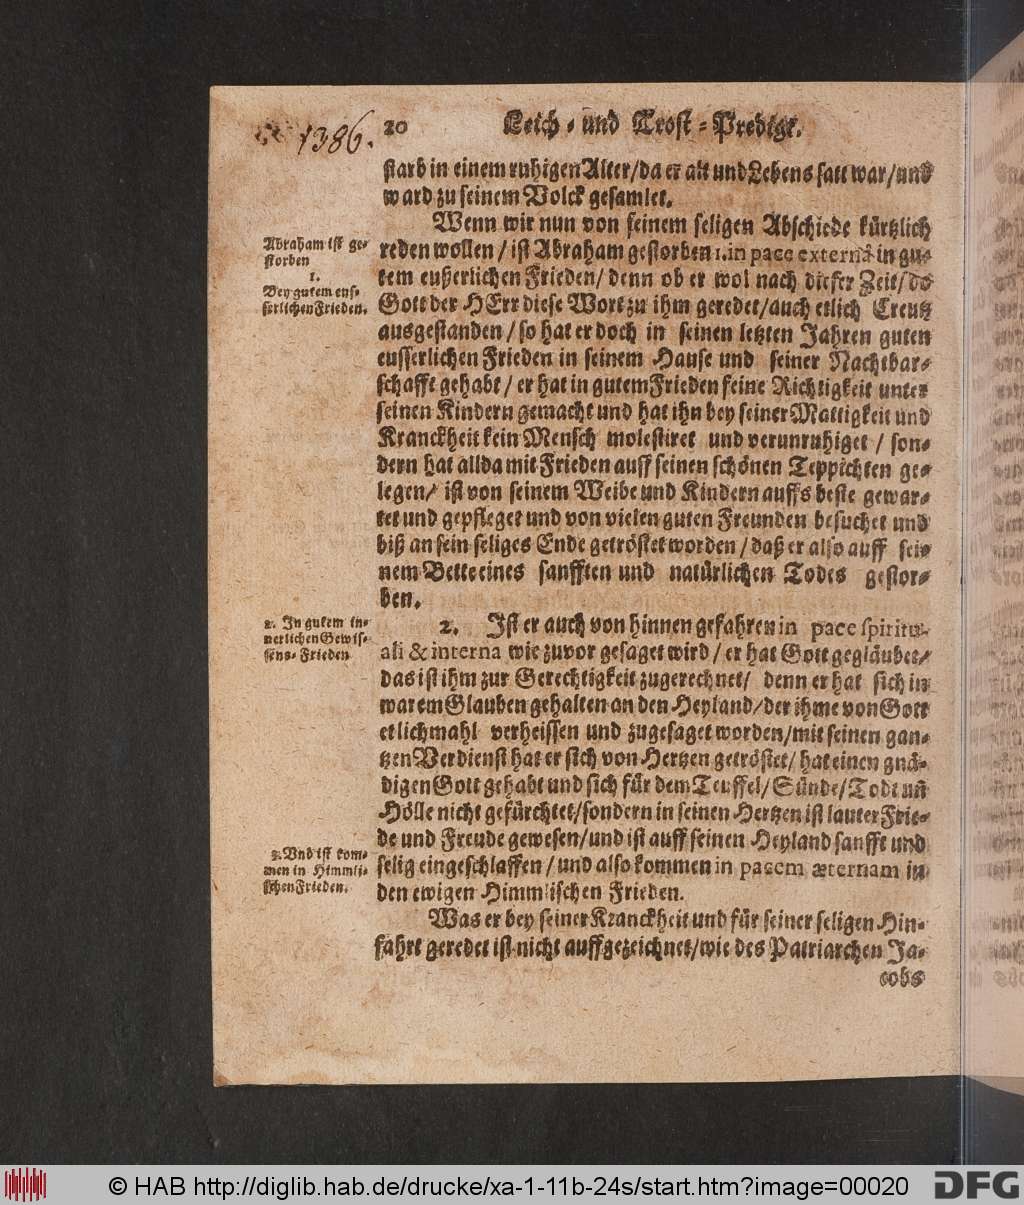 1386.
20 Leich- und Trost-Predigt.
starb in einem ruhigen Alter/da er alt und Lebens satt war/und
ward zu seinem Volck gesamlet.
Wenn wir nun von seinem seligen Abschiede kürtzlich
Abraham ist ge-
storben
1.
Bey gutem eus-
serlichen Frieden.
reden wollen / ist Abraham gestorben 1. in pace externâ in gu-
tem eußerlichen Frieden/ denn ob er wol nach dieser Zeit/ da
Gott der HErr diese Wort zu ihm geredet/auch etlich Creutz
ausgestanden / so hat er doch in seinen letzten Jahren guten
eusserlichen Frieden in seinem Hause und seiner Nachtbar-
schafft gehabt / er hat in gutem Frieden seine Richtigkeit unter
seinen Kindern gemacht und hat ihn bey seiner Mattigkeit und
Kranckheit kein Mensch molestiret und verunruhiget / son-
dern hat allda mit Frieden auff seinen schönen Teppichten ge-
legen/ ist von seinem Weibe und Kindern auffs beste gewar-
tet und gepfleget und von vielen guten Freunden besuchet und
biß an sein seliges Ende getröstet worden / daß er also auff sei-
nem Bette eines sanfften und natürlichen Todes gestor-
ben.
2. In gutem in-
nerlichen Gewis-
sens-Frieden
2. Ist er auch von hinnen gefahren in pace spiritu-
ali & interna wie zuvor gesaget wird / er hat Gott gegläubet/
das ist ihm zur Gerechtigkeit zugerechnet/ denn er hat sich in
warem Glauben gehalten an den Heyland/der ihme von Gott
etlichmahl verheissen und zugesaget worden/mit seinen gan-
tzen Verdienst hat er sich von Hertzen getröstet/ hat einen gnä-
digen Gott gehabt und sich für dem Teuffel/Sünde/Todt uñ
Hölle nicht gefürchtet/sondern in seinen Hertzen ist lauter Frie-
de und Freude gewesen/und ist auff seinen Heyland sanfft und
3. Vnd ist kom-
men in Himmli-
schen Frieden.
selig eingeschlaffen / und also kommen in pacem æternam in
den ewigen Himmlischen Frieden.
Was er bey seiner Kranckheit und für seiner seligen Hin-
fahrt geredet ist nicht auffgezeichnet/wie des Patriarchen Ja-
cobs
© HAB http://diglib.hab.de/drucke/xa-1-11b-24s/start.htm?image=00020
DFG